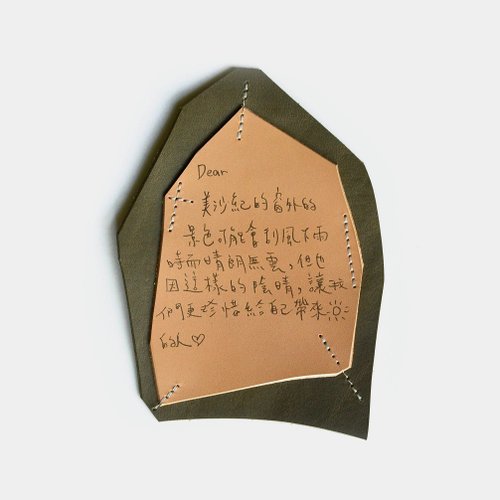 Dear
美沙紀的窗外的
景色可能會刮風下雨
時而晴朗無雲，但也
因這樣的陰晴，讓我
們更珍惜給自己帶來☼
的人♡